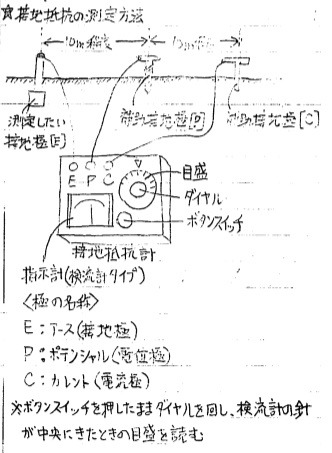 ☆接地抵抗の測定方法
10m程度 10m程度
測定したい
接地極[E]
補助接地極[P] 補助接地極[C]
E P C
目盛
ダイヤル
ボタンスイッチ
接地抵抗計
指示計(検流計タイプ)
<極の名称>
E:アース(接地極)
P:ポテンシャル(電位極)
C:カレント(電流極)
※ボタンスイッチを押したままダイヤルを回し、検流計の針
が中央にきたときの目盛を読む